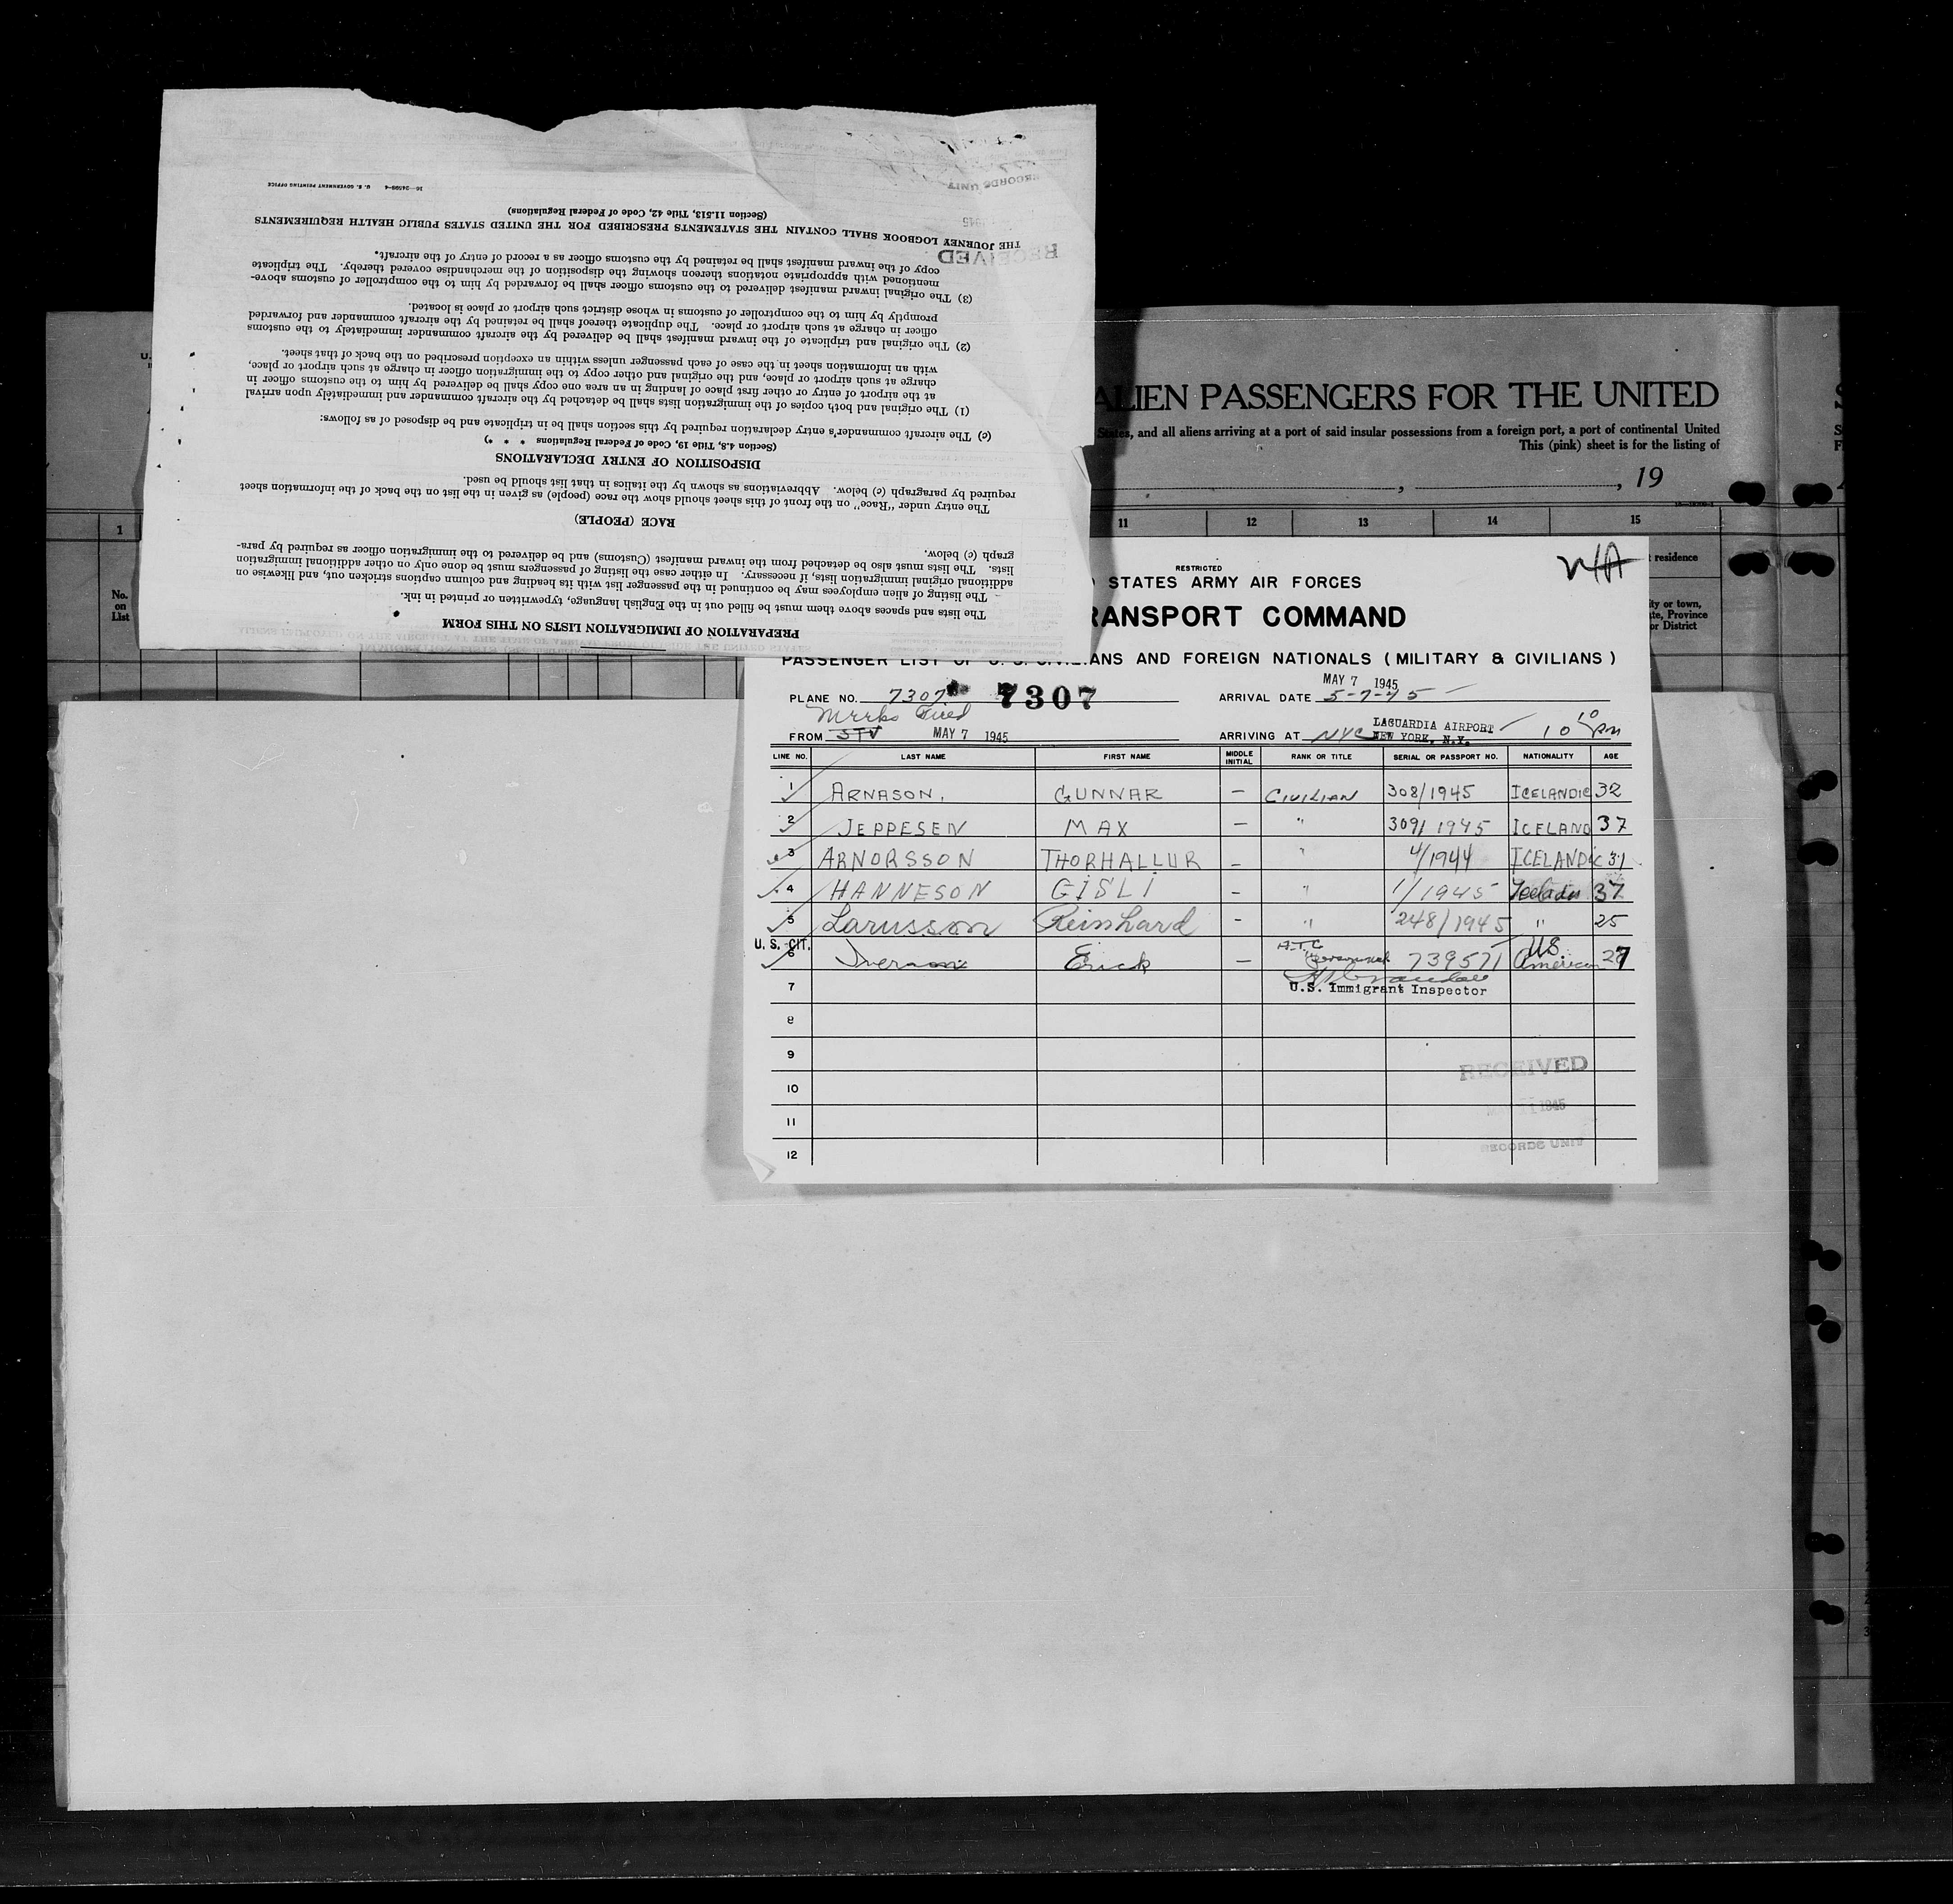 PREPARATION OF IMMIGRATION LISTS ON THIS FORM
The lists and spaces above them must be filled out in the English language, typewritten or printed in ink.
The listing of alien employees may be continued in the passenger list with its heading and column captions stricken out, and likewise on
additional original immigration lists, if necessary. In either case the listing of passengers must be done only on other additional immigration
lists. The lists must also be detached from the inward manifest (Customs) and be delivered to the immigration officer as required by para-
graph (c) below.
RACE (PEOPLE)
The entry under "Race" on the front of this sheet should show the race (people) as given in the list on the back of the information sheet
required by paragraph (c) below. Abbreviations as shown by the italics in that list should be used.
DISPOSITION OF ENTRY DECLARATIONS
(Section 4.8, Title 19, Code of Federal Regulations * * *)
(c) The aircraft commander's entry declaration required by this section shall be in triplicate and be disposed of as follows:
(1) The original and both copies of the immigration lists shall be detached by the aircraft commander and immediately upon arrival
at the airport of entry or other first place of landing in an area one copy shall be delivered by him to the customs officer in
charge at such airport or place, and the original and other copy to the immigration officer in charge at such airport or place,
with an information sheet in the case of each passenger unless within an exception prescribed on the back of that sheet.
(2) The original and triplicate of the inward manifest shall be delivered by the aircraft commander immediately to the customs
officer in charge at such airport or place. The duplicate thereof shall be retained by the aircraft commander and forwarded
promptly by him to the comptroller of customs in whose district such airport or place is located.
(3) The original inward manifest delivered to the customs officer shall be forwarded by him to the comptroller of customs above-
mentioned with appropriate notations thereon showing the disposition of the merchandise covered thereby. The triplicate
copy of the inward manifest shall be retained by the customs officer as a record of entry of the aircraft.
THE JOURNEY LOGBOOK SHALL CONTAIN THE STATEMENTS PRESCRIBED FOR THE UNITED STATES PUBLIC HEALTH REQUIREMENTS
(Section 11.513, Title 42, Code of Federal Regulations)
16—24599-4 U. S. GOVERNMENT PRINTING OFFICE
RECEIVED
1945
RECORDS UNIT
ALIEN PASSENGERS FOR THE UNITED
States, and all aliens arriving at a port of said insular possessions from a foreign port, a port of continental United
This (pink) sheet is for the listing of
, 19
1 11 12 13 14 15
No.
on
List
residence
ity or town,
te, Province
or District
N/A
RESTRICTED
STATES ARMY AIR FORCES
RANSPORT COMMAND
PASSENGER LIST OF U. S. CIVILIANS AND FOREIGN NATIONALS (MILITARY & CIVILIANS)
PLANE NO. 7307 7307 ARRIVAL DATE MAY 7 1945 5-7-45
Meeks Field
FROM STV MAY 7 1945 ARRIVING AT NYC LAGUARDIA AIRPORT NEW YORK, N.Y. 10 10 PM
LINE NO. LAST NAME FIRST NAME MIDDLE INITIAL RANK OR TITLE SERIAL OR PASSPORT NO. NATIONALITY AGE
1 ARNASON, GUNNAR — CIVILIAN 308/1945 ICELANDIC 32
2 JEPPESEN MAX — " 309/1945 ICELAND 37
3 ARNORSSON THORHALLUR — " 4/1944 ICELANDIC 31
4 HANNESON GISLI — " 1/1945 37
5 Larusson Reinhard - " 248/1945 " 25
U. S. CIT.
6 Erick — A.T.C. Personnel 739571 U.S. American 27
U.S. Immigrant Inspector
7
8
9
10
11
12
RECEIVED
1945
RECORDS UNIT